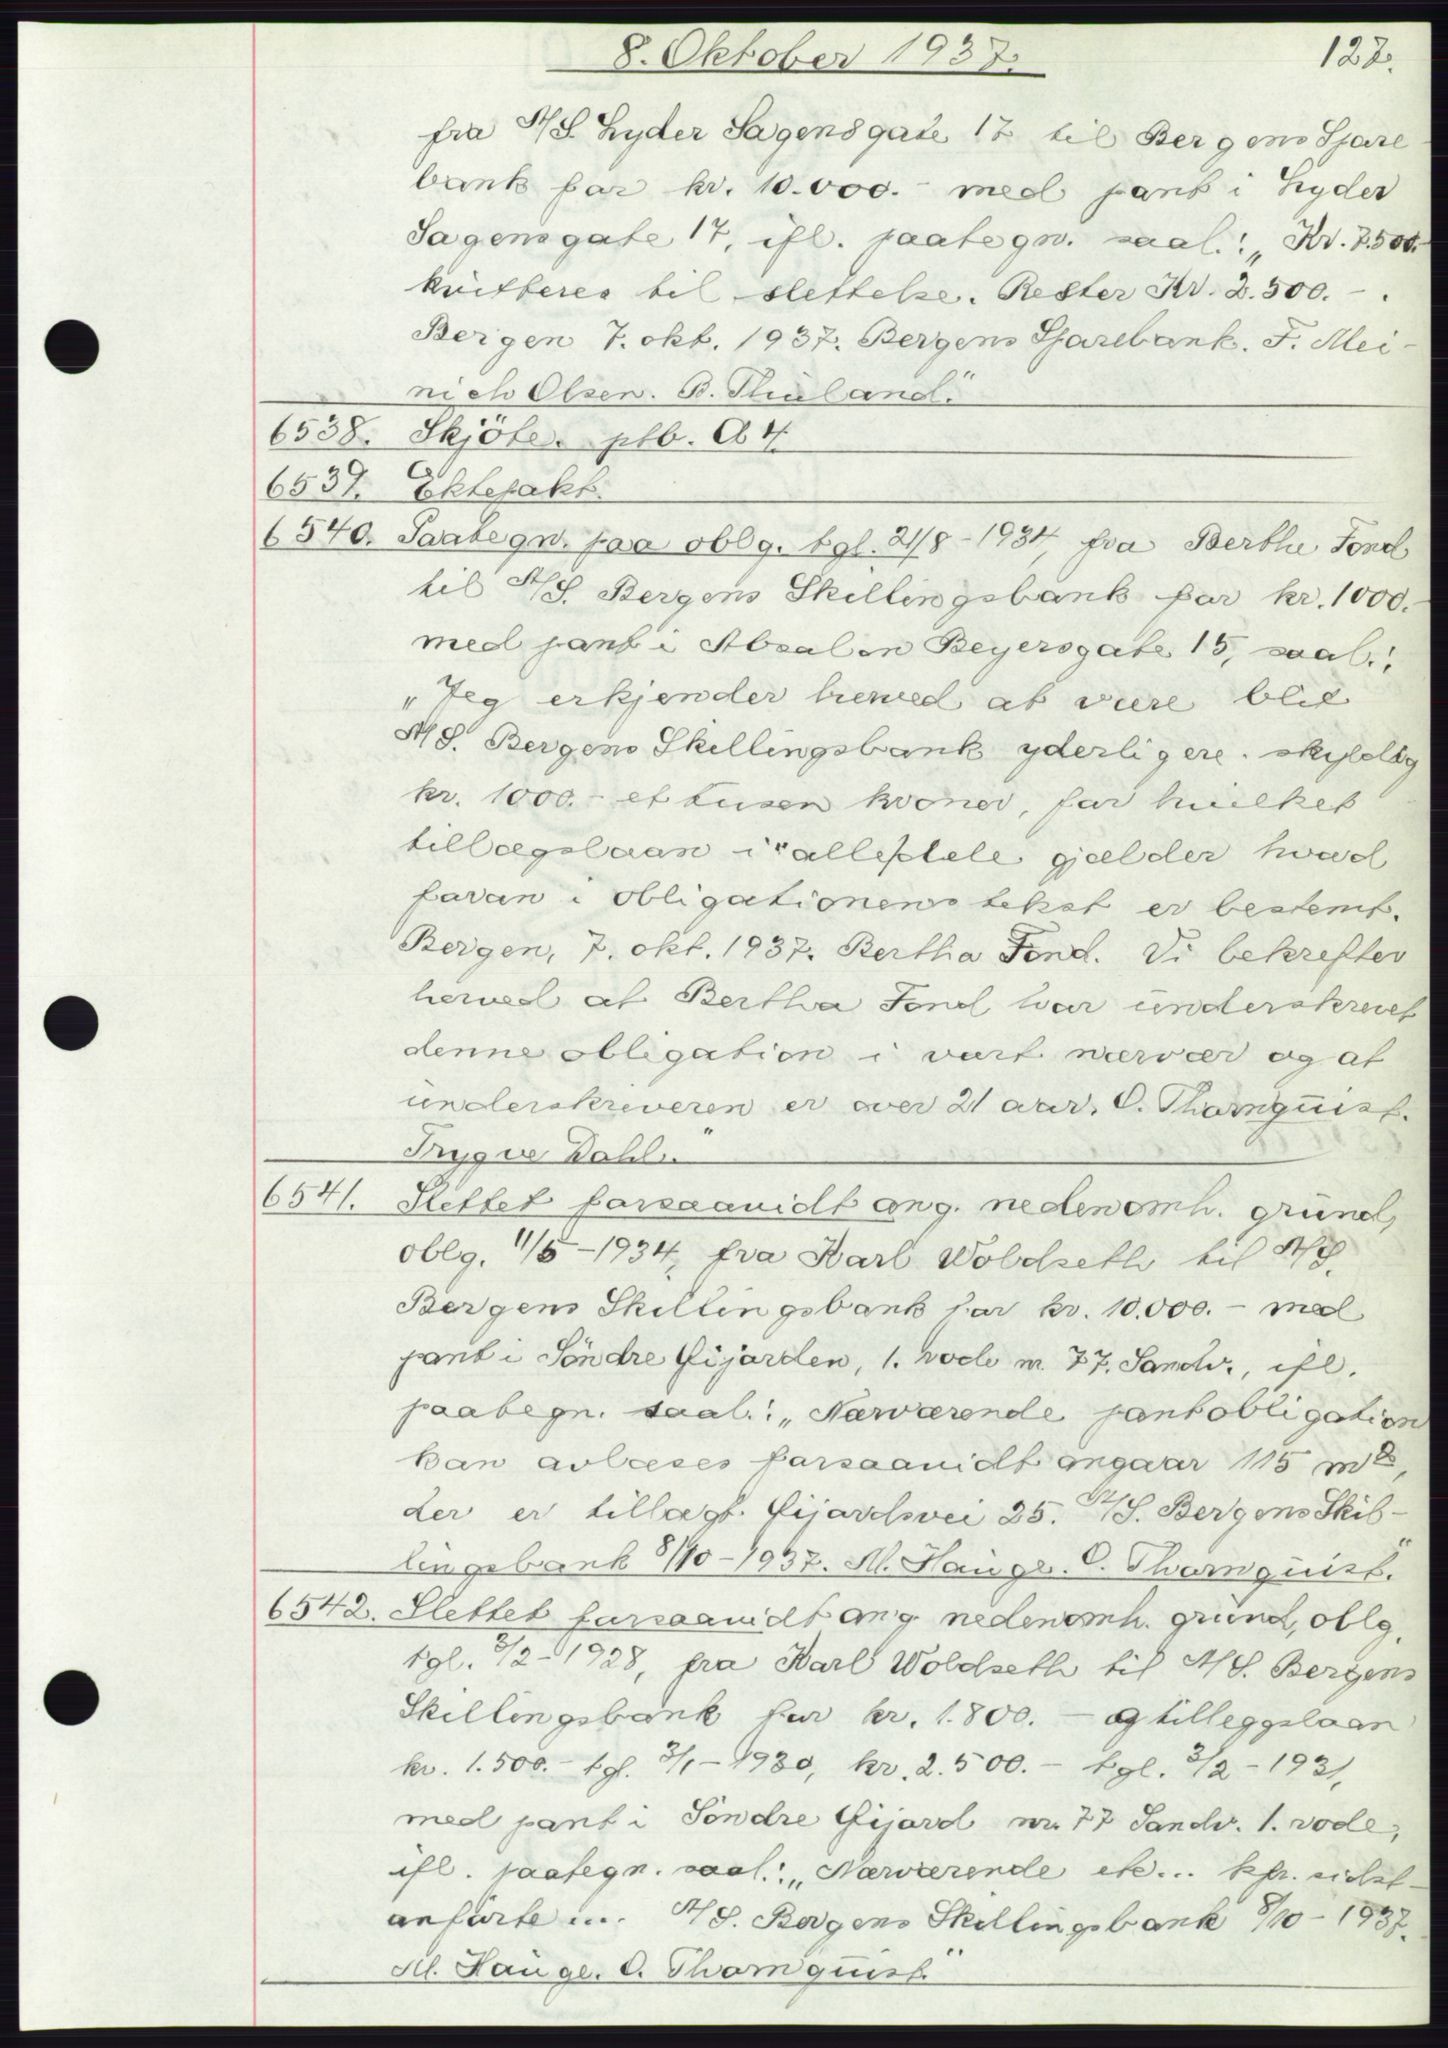 8. Oktober 1937.
127.
fra A/S. Lyder Sagensgate 17 til Bergens Spare
bank for kr. 10.000.- med pant i Lyder
Sagensgate 17, ifl. paategn. saal.: „Kr. 7.500.-
kvitteres til slettelse. Rester Kr. 2.500.- .
Bergen 7. okt. 1937. Bergens Sparebank. F. Mei-
nich Olsen. B. Thuland."
6538. Skjöte. ptb. A 4.
6539. Ektepakt.
6540. Paategn. paa oblg. tgl. 21/8-1934, fra Berthe Fond
til A/S. Bergens Skillingsbank for kr. 1000.-
med pant i Absalon Beyersgate 15, saal.:
„Jeg erkjender herved at være blit
A/S. Bergens Skillingsbank yderligere skyldig
kr. 1000.- et tusen kroner, for hvilket
tillægslaan i alle dele gjælder hvad
foran i obligationens tekst er bestemt.
Bergen, 7. okt. 1937. Bertha Fond. Vi bekrefter
herved at Bertha Fond har underskrevet
denne obligation i vort nærvær og at
underskriveren er over 21 aar. O. Thornquist.
Trygve Dahl."
6541. Slettet forsaavidt ang. nedenomh. grund,
oblg. 11/5-1934, fra Karl Woldseth til A/S.
Bergens Skillingsbank for kr. 10.000.- med
pant i Söndre Fijorden, 1. rode nr. 77. Sandv., ifl.
paategn. saal.: „Nærværende pantobligation
kan avlæses forsaavidt angaar 115 m2,
der er tillagt Fijordsvei 25. A/S. Bergens Skil-
lingsbank 8/10-1937. M. Hauge. O. Thornquist."
6542. Slettet forsaavidt ang. nedenomh. grund, oblg.
tgl. 3/2-1928, fra Karl Woldseth til A/S. Bergens
Skillingsbank for kr. 1.800.- og tilleggslaan
kr. 1.500.- tgl. 3/1-1930, kr. 2.500.- tgl. 3/2-1931,
med pant i Söndre Fijord nr. 77 Sandv. 1. rode,
ifl. paategn. saal.: „Nærværende etc... kfr. sidst-
anförte .... A/S. Bergens Skillingsbank 8/10-1937.
M. Hauge. O. Thornquist."